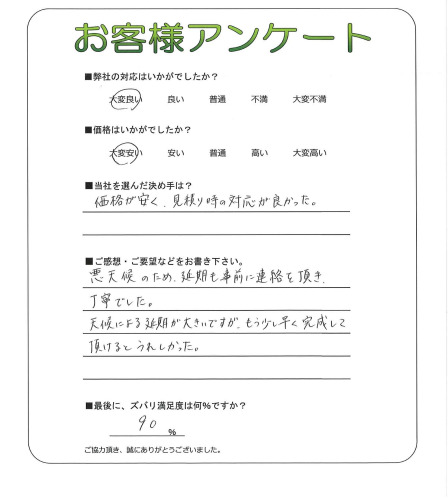 お客様アンケート
■弊社の対応はいかがでしたか？
大変良い 良い 普通 不満 大変不満
■価格はいかがでしたか？
大変安い 安い 普通 高い 大変高い
■当社を選んだ決め手は？
価格が安く、見積り時の対応が良かった。
■ご感想・ご要望などをお書き下さい。
悪天候のため、延期も事前に連絡を頂き、
丁寧でした。
天候による延期が大きいですが、もう少し早く完成して
頂けるとうれしかった。
■最後に、ズバリ満足度は何％ですか？
90 ％
ご協力頂き、誠にありがとうございました。